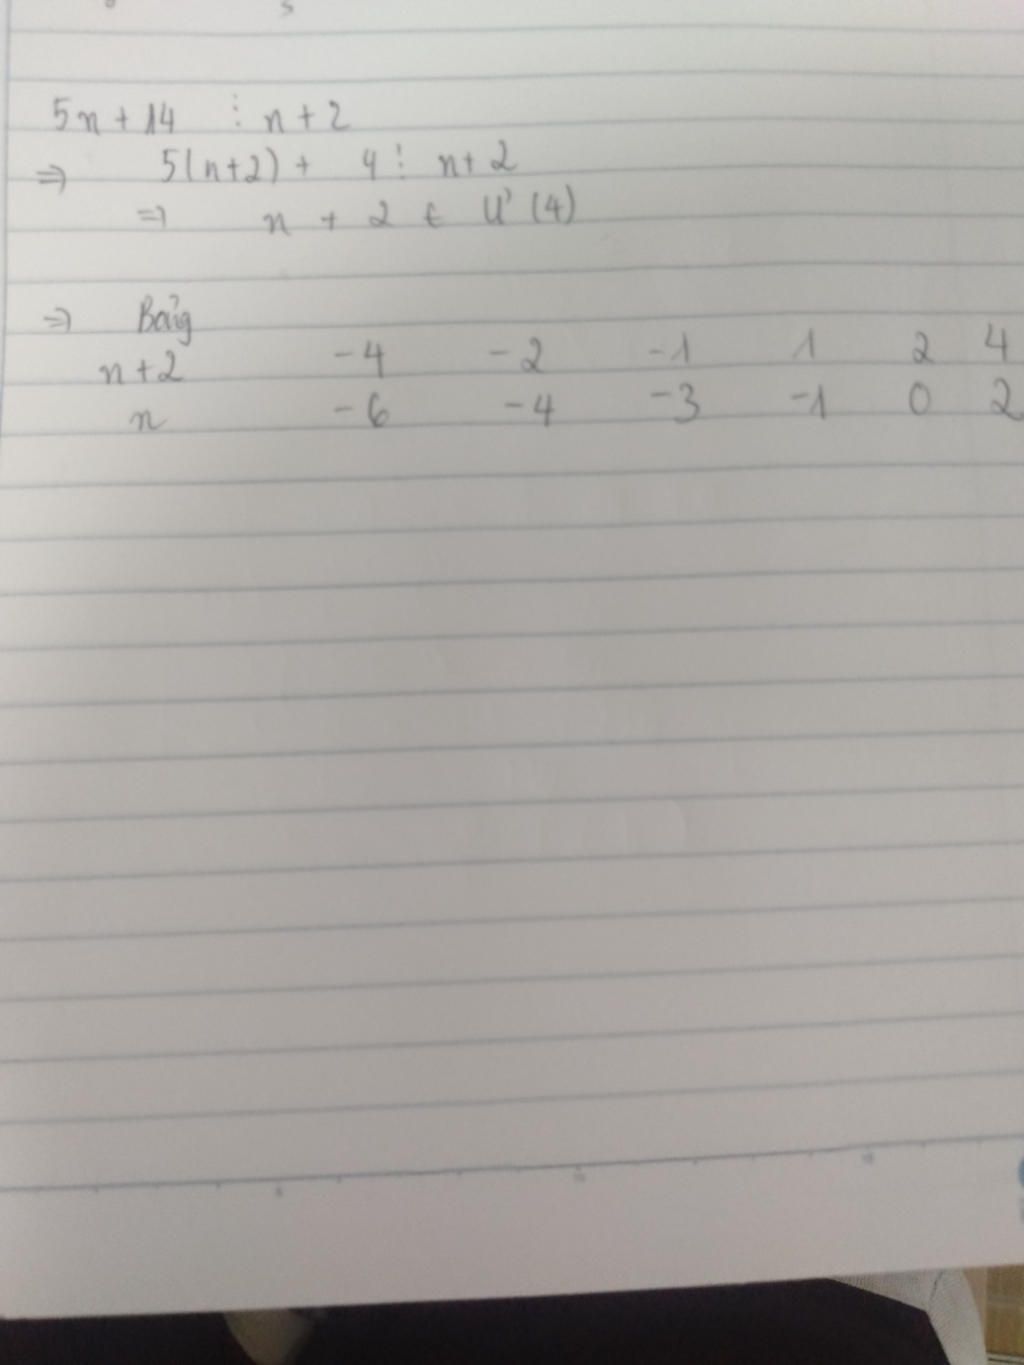 5n + 14 ⋮ n + 2
⇒ 5(n+2) + 4 ⋮ n + 2
⇒ n + 2 ∈ Ư(4)
⇒ Bảng
n+2 -4 -2 -1 1 2 4
n -6 -4 -3 -1 0 2